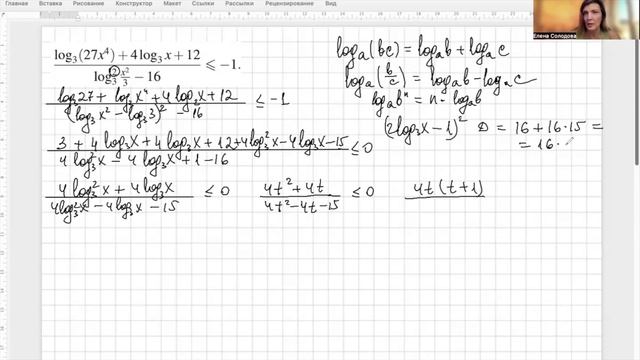 Главная Вставка Рисование Конструктор Макет Ссылки Рассылки Рецензирование Вид
Елена Солодова
log₃(27x⁴) + 4 log₃ x + 12 / log₃² x²/3 − 16 ⩽ −1.
logₐ(bc) = logₐb + logₐc
logₐ(b/c) = logₐb − logₐc
logₐbⁿ = n · logₐb
log₃27 + log₃x⁴ + 4log₃x + 12 / (log₃x² − log₃3)² − 16 ≤ −1
(2log₃x − 1)² D = 16 + 16·15 =
= 16 ·
3 + 4log₃x + 4log₃x + 12 + 4log₃²x − 4log₃x − 15 / 4log₃²x − 4log₃x + 1 − 16 ≤ 0
4log₃²x + 4log₃x / 4log₃²x − 4log₃x − 15 ≤ 0 4t² + 4t / 4t² − 4t − 15 ≤ 0 4t(t + 1)